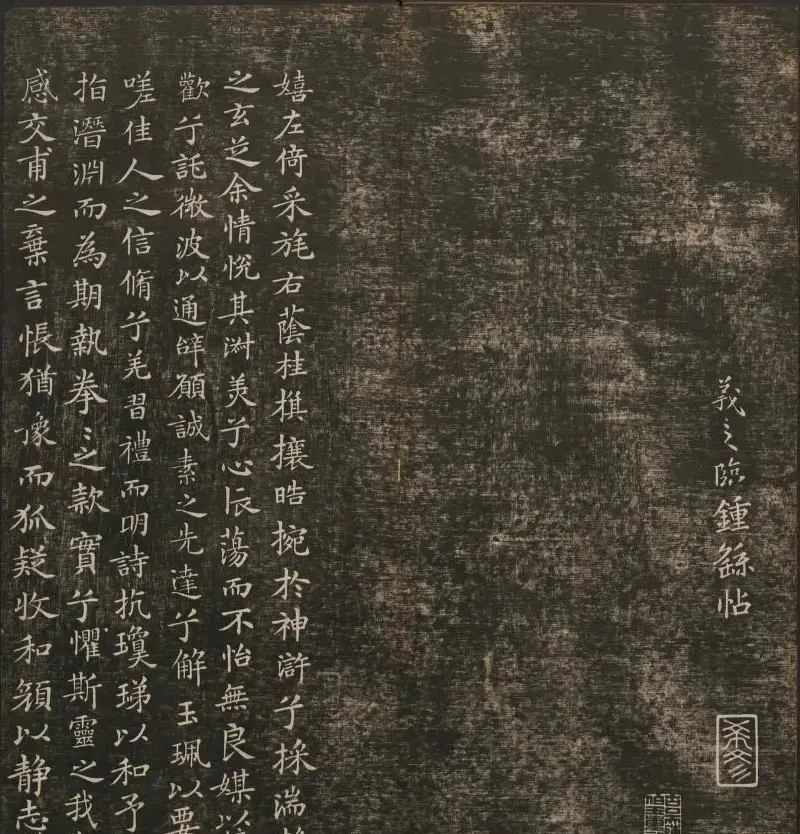 羲之臨鍾繇帖
嬉左倚采旄右蔭桂旗攘皓捥於神滸兮採湍
之玄芝余情悅其淑美兮心振蕩而不怡無良媒以
歡兮託微波以通辭願誠素之先達兮解玉珮以要
嗟佳人之信脩兮羌習禮而明詩抗瓊珶以和予
指潛淵而為期執拳〻之款實兮懼斯靈之我
感交甫之棄言悵猶豫而狐疑收和顏以静志